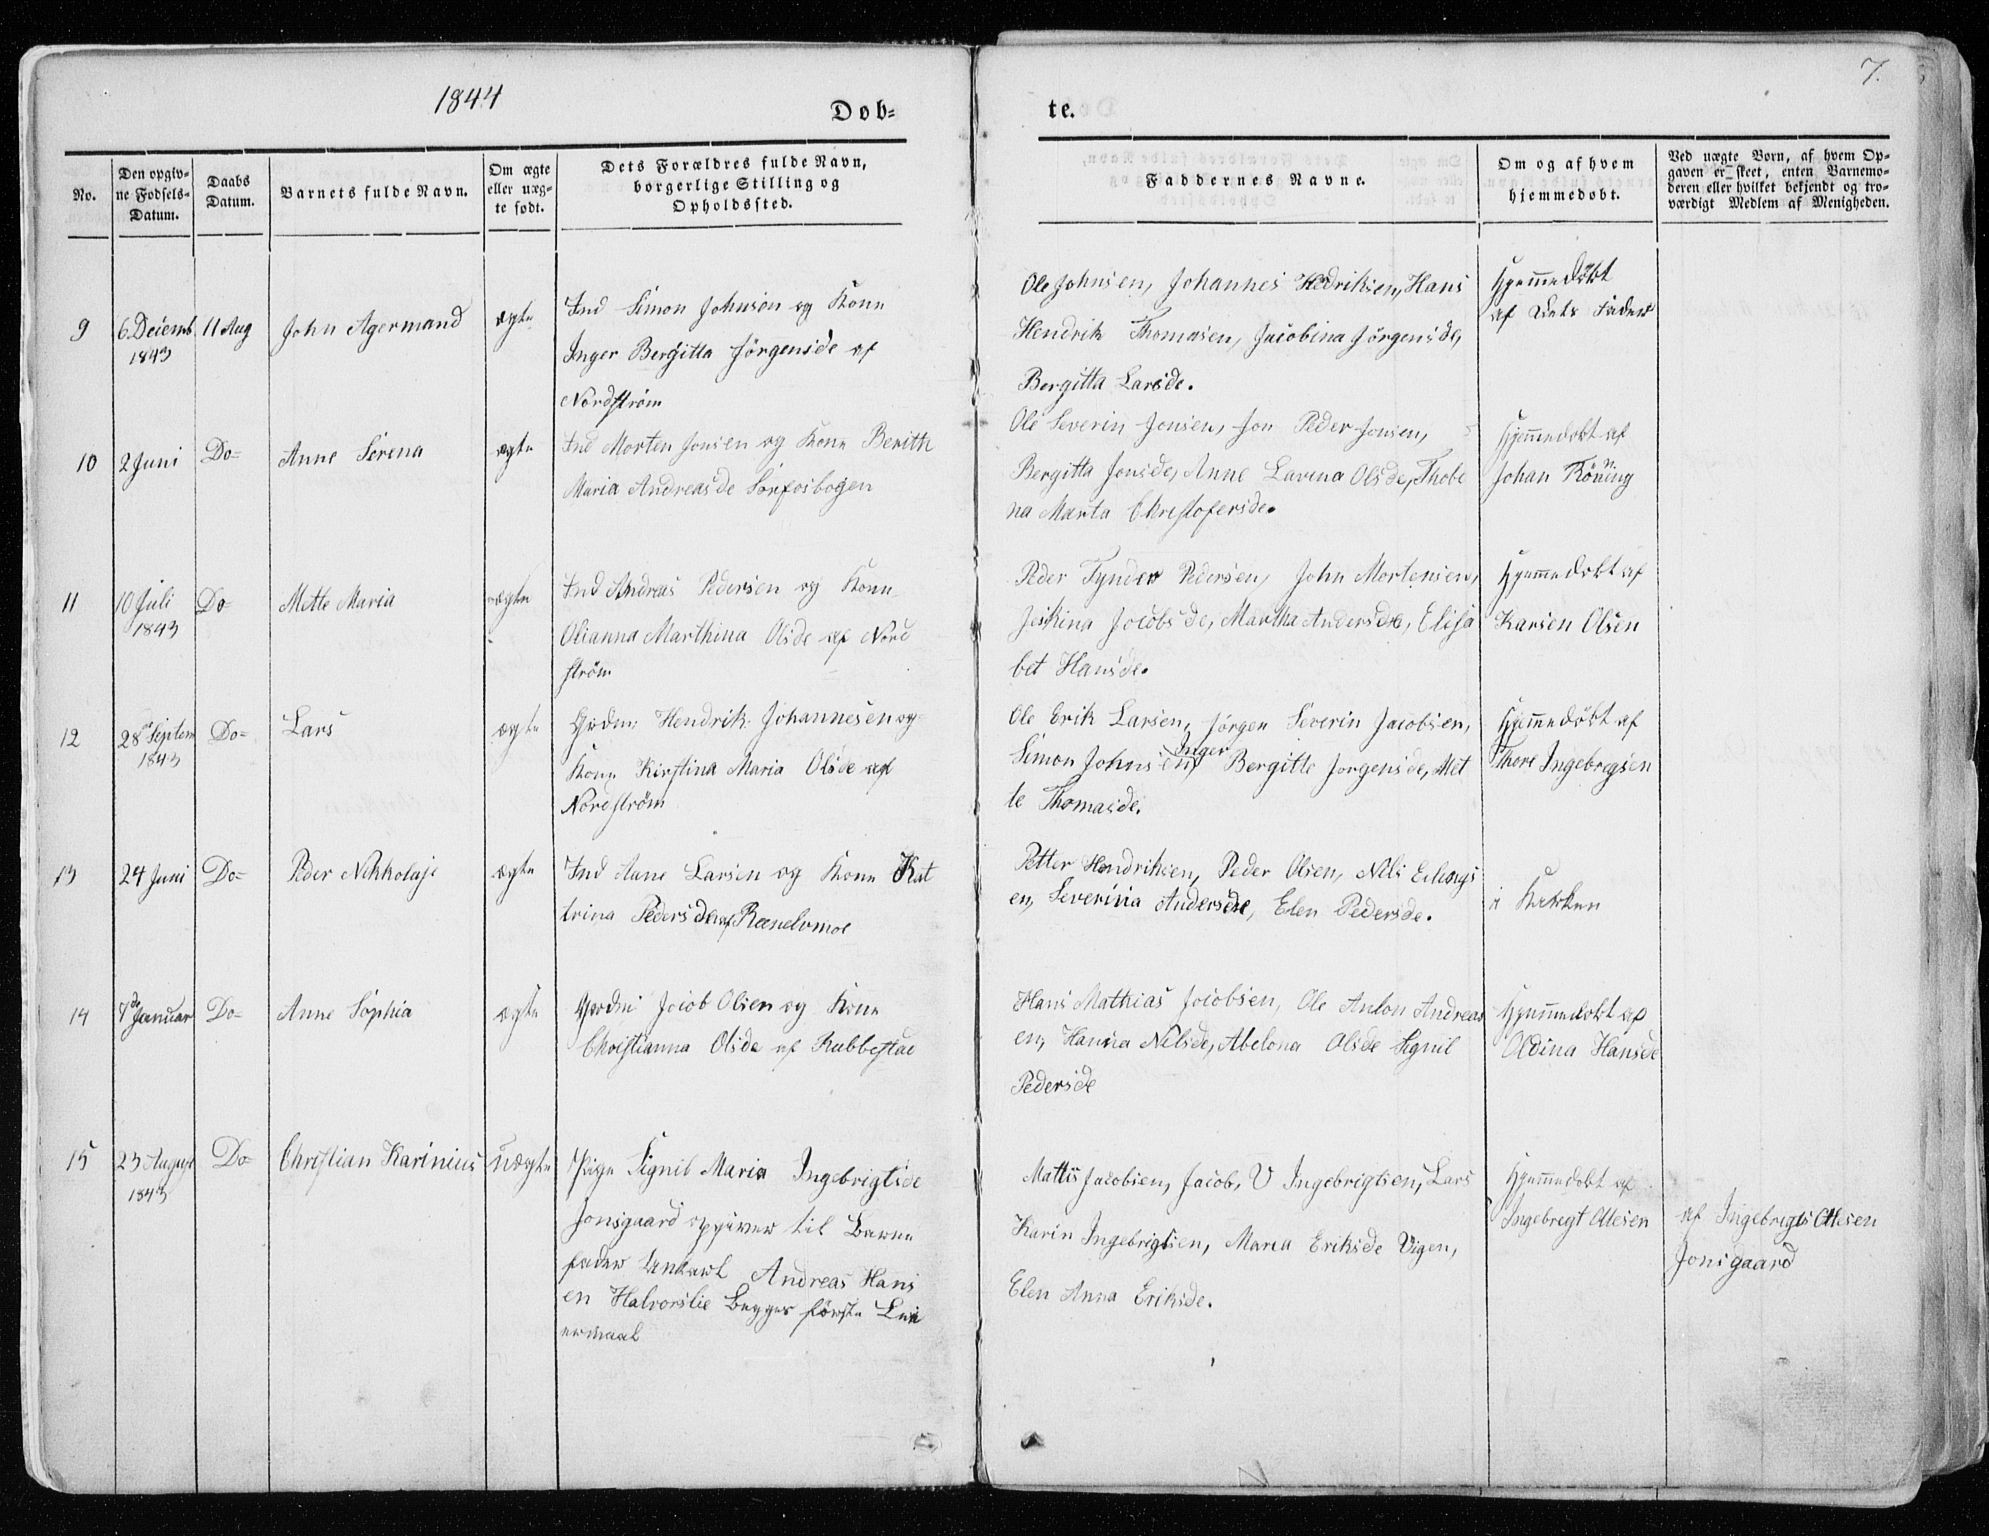 1844
Døb=
te.
7.
No.
Den opgiv-
ne Fødsels-
Datum.
Daabs
Datum.
Barnets fulde Navn.
Om ægte
eller uæg-
te født.
Dets Forældres fulde Navn,
borgerlige Stilling og
Opholdssted.
Faddernes Navne.
Om og af hvem
hjemmedøbt.
Ved uægte Børn, af hvem Op-
gaven er skeet, enten Barnemo-
deren eller hvilket bekjendt og tro-
værdigt Medlem af Menigheden.
9
6 Decemb
1843
11 Aug
John Agermand
ægte
Ind Simon Johnsen og Kone
Inger Bergitta Jørgensde af
Nordstrøm
Ole Johnsen, Johannes Hedriksen, Hans
Hendrik Thomasen, Jacobina Jörgensde,
Bergitta Larsde.
Hjemmedøbt
af Dets Fader
10
2 Juni
Do=
Anne Serena
ægte
Ind Morten Jonsen og Kone Berith
Maria Andreasde Sørfosbogen
Ole Severin Jonsen, Jon Peder Jonsen,
Bergitta Jonsde, Anne Lavina Olsde, Thobe
na Marta Christofersde.
Hjemmedøbt af
Johan Röning
11
10 Juli
1843
Do=
Mette Maria
ægte
Ind Andreas Pedersen og Kone
Olianna Marthina Olsde af Nord
strøm
Peder Tynder Pedersen, John Mortensen,
Jeskina Jocobsde, Martha Andersde, Elisa
bet Hansde.
Hjemmedøbt af
Karsen Olsen
12
28 Septem
1843
Do=
Lars
ægte
Grdm: Hendrik Johannesen og
Kone Kirstina Maria Olsde af
Nordstrøm
Ole Erik Larsen, Jörgen Severin Jacobsen,
Inger
Simon Johnsen, Bergitte Jorgensde, Met
te Thomasde.
Hjemmedøbt af
Thore Ingebregsen
13
24 Juni
Do=
Peder Nikkolaje
ægte
Ind Aane Larsen og Kone Kat
trina Pedersde af Rænelvmoe
Petter Hendriksen, Peder Olsen, Nils Erlings
en, Severina Andersde, Elen Pedersde.
i Kirken
14
7de Januar
Do=
Anne Sophia
ægte
Grdm: Jocob Olsen og Kone
Christianna Olsde af Rubbestad
Hans Mathias Jocobsen, Ole Anton Andreas
en, Hanna Nilsde, Abelona Olsde Signil
Pedersde
Hjemmedøbt af
Oldina Hansde
15
23 August
1843
Do=
Christian Karinius
uægte
Pige Signil Maria Ingebrigtsde
Jonsgaard opgiver til Barne
fader Unkarl Andreas Hans
en Halvorslie Begges første Lei
ermaal
Mattis Jacobsen, Jacob, U Ingebrigtsen, Lars
Karin Ingebrigtsen, Maria Eriksde Vigen,
Elen Anna Eriksde.
Hjemmedøbt af
Ingebregt Olesen
af Ingebrigts Olesen
Jonsgaard